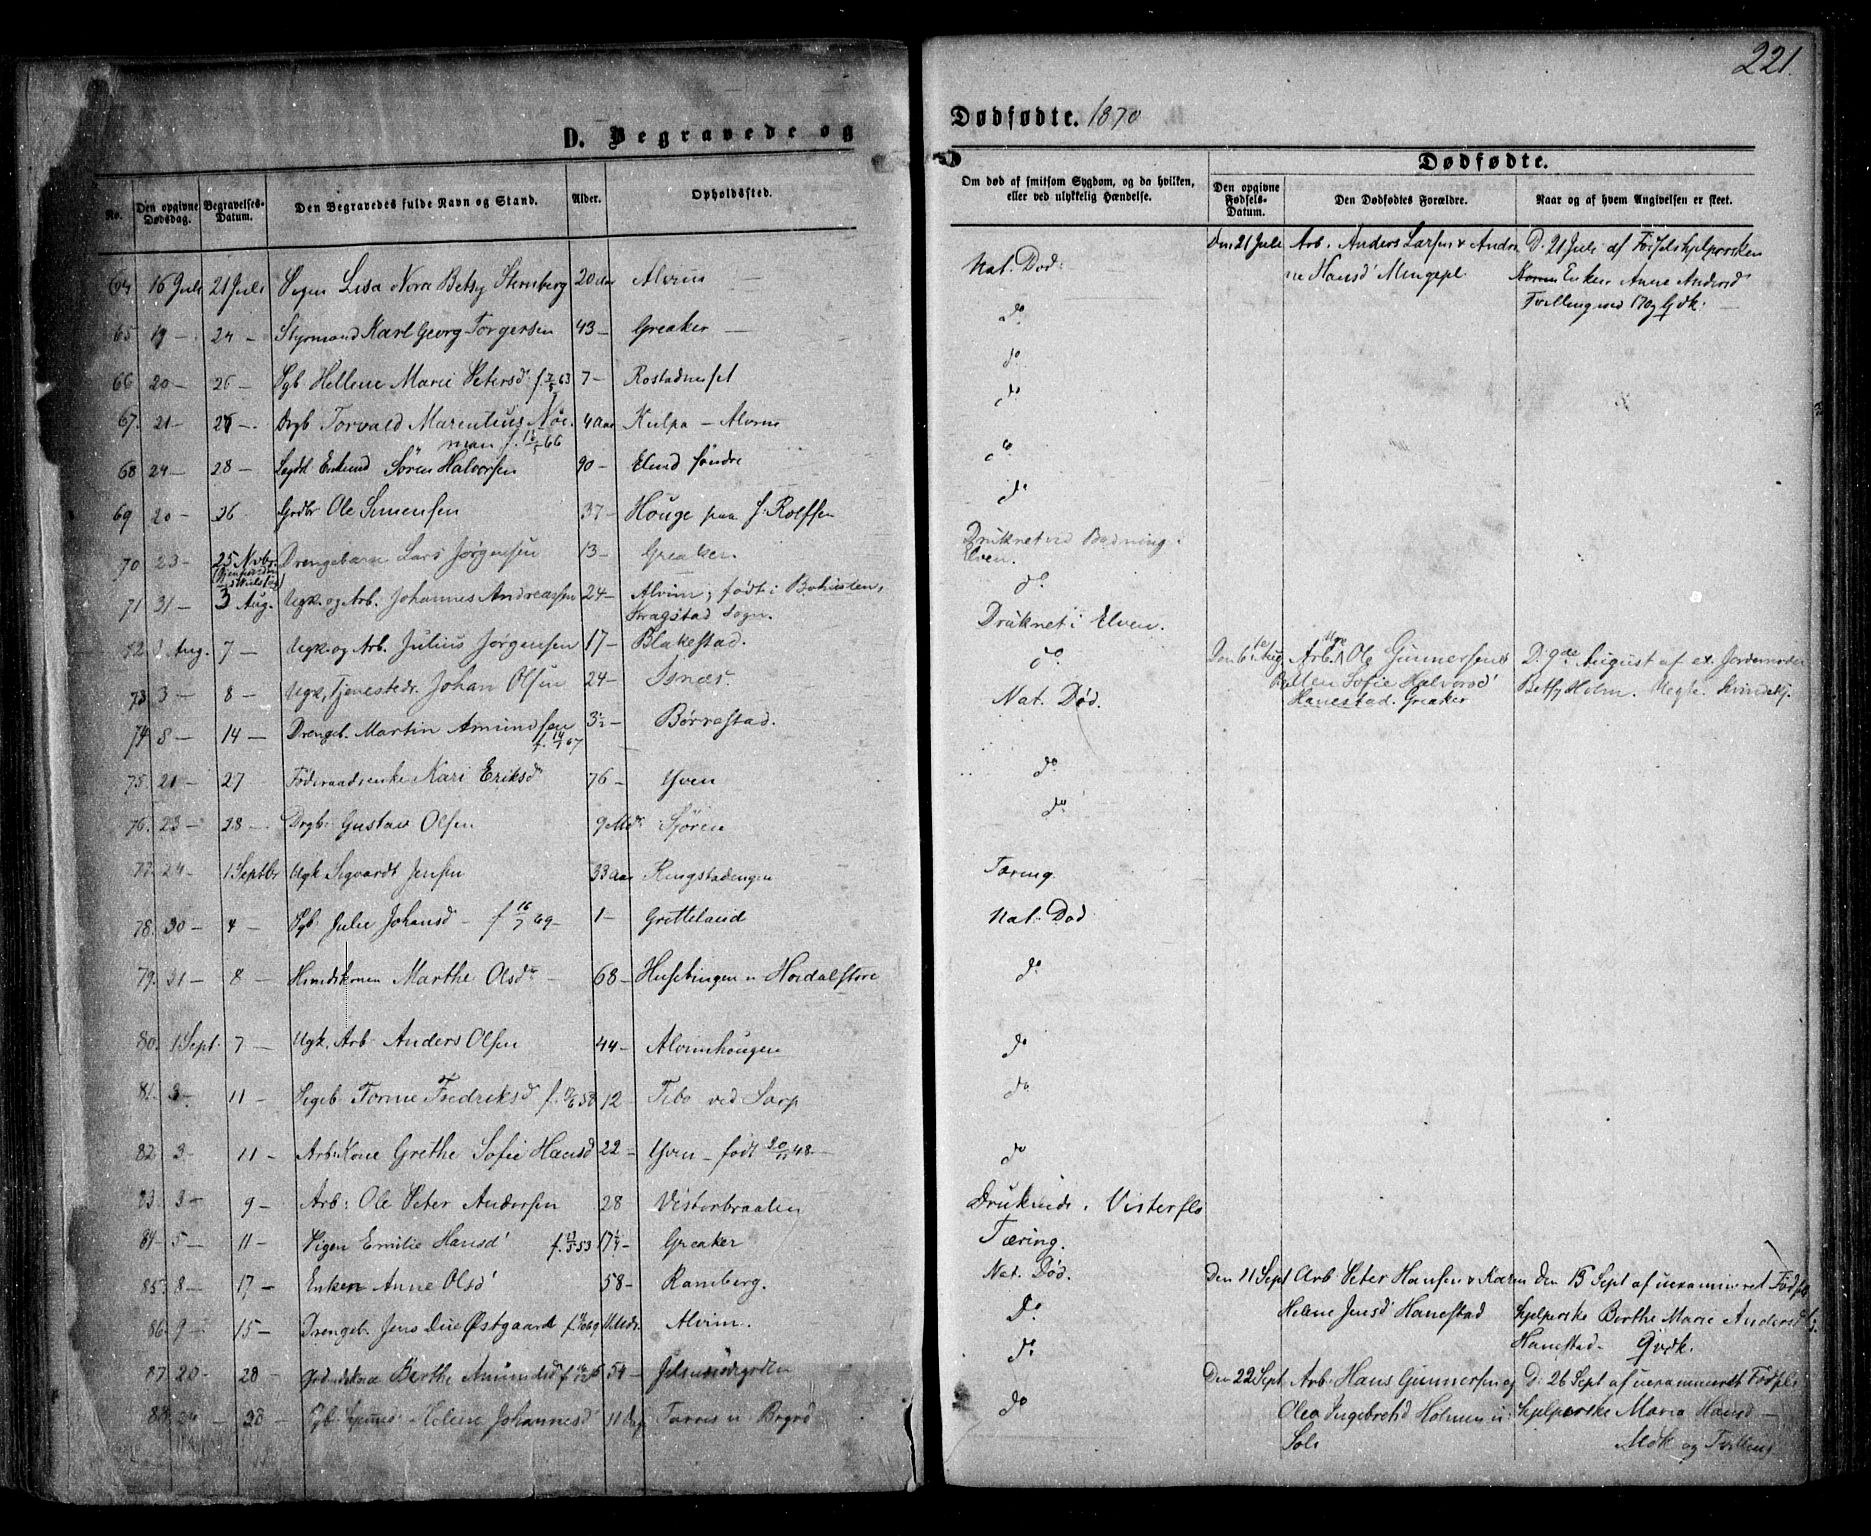 221.
D. Begravede og
Dødfødte. 1870
No.
Den opgivne Dødsdag.
Begravelses-Datum.
Den Begravedes fulde Navn og Stand.
Alder.
Opholdssted.
Om død af smitsom Sygdom, og da hvilken, eller ved ulykkelig Hændelse.
Dødfødte.
Den opgivne Fødsels-Datum.
Den Dødfødtes Forældre.
Naar og af hvem Angivelsen er skeet.
64 16 Juli 21 Juli Pigen Lisa Norre Betsy Sternberg 20 Aar Alvim —
65 19 — 24 — Styrmand Karl Georg Torgersen 43 — Greaker —
66 20 — 26 — Pgb Hellene Marie Petersd f 63 7 — Rostadneset
67. 21 — 26 — Drgb Torvald Marentius Noe- 4 Aar Kulpa — Alvim
man f. 66
68 24 — 28 — Enkmd Søren Halvorsen 90 — Elind søndre
69 20 — 26 Grdbr Ole Simensen 37 — Houge paa J. Rolfsen
70 23 — 25 Nvbr. Drengebarn Lars Jørgensen 13 — Greaker
71 31 — 3 Aug. Ugk. og Arb. Johannes Andreassen 24 — Alvim; født i Bohuslen,
Kragstad Sogn.
52 3 Aug. 7 — Ugk. og Arb. Julius Jørgensen 17 — Blakestad.
73 3 — 8 — Ugk, Tjenestedr. Johan Olsen 24 — Isnæs
74 8 — 14 — Drengeb. Martin Amundsen 3½ — Børrestad.
f. 67
75 21 — 27 Føderaadsenke Kari Eriksd 76 — Yven
76. 23 — 28 — Drgb. Gustav Olsen 9 Mdr Sjøren
77 24 — 1 Septbr Ugk Sigvardt Jensen 33 Aar Ringstadengen
78. 30 — 4 — Pgb. Julie Johansd — f 16/7 69 — 1 — Gretteland
79. 31 — 8 — Marthe Olsd — 68 — Husebingen u Hordalstore
80. 1 Sept. 7 — Ugk. Arb. Anders Olsen 44 — Alvimhougen
81. 3 — 11 — Pigeb Tomine Fredriksd f. 58 12 — Tebo ved Sarp
82 3 — 11 — Arb. Kone Grethe Sofie Hansd 22 — Yven — født 20/11 48 —
83 3 — 9 — Arb: Ole Peter Andersen 28 Visterbraaten
84 5 — 11 — Pigen Emilie Hansd f. 53 17¼ — Greaker
85 8 — 17 — Enken Anne Olsd 58 — Ramberg.
86. 9 — 15 — Drengeb. Jens Due Østgaard f 69 11 Mdr. Alvim.
87 20 — 28 — Berthe Amundsd f 54 —
88 24 — 28 — Pgb Helene Johannesd 11 Dage Torvis u. Borgo
Nat. Død.
do
do
do
do
do
Druknet ved Badning i
Elven.
do
Druknet i Elven.
do
Nat. Død.
do
do
Tæring.
Nat. Død
do
do
do
do
Druknede i Visterflo
Tæring.
Nat. Død.
Do
do
do
Den 21 Juli Arb. Anders Larsen & Andri- D. 21 Juli af Fødselshjelpersken
ne Hansd Mingepl Enken Anne Andersd
Tvilling med 170 Gdk. —
Den 6te Aug Arb. Ole Gunnersen D. 9de August af ex. Jordemoder
Ellen Sofie Halvorsd Betsy Holm. Uegte. Kvindekj.
Hanestad. Greaker
Den 11 Sept Arb Peter Hansen & Karen Den 15 Sept af uexamineret Fødsels
Helene Jensd Hanestad hjelperske Berthe Marie Andersd
Hanestad. Gvdk.
Den 22 Sept Arb. Hans Gunnersen og D. 26 Sept af uexamineret Fødsels
Olea Ingebretsd Holmen u. hjelperske Maria Hansd —
Soli Mdk og Tvilling